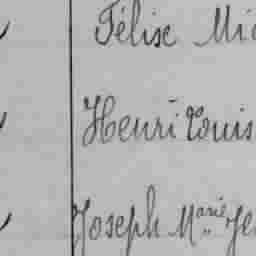 Félise Mic
Henri Louis
Joseph Marie Je